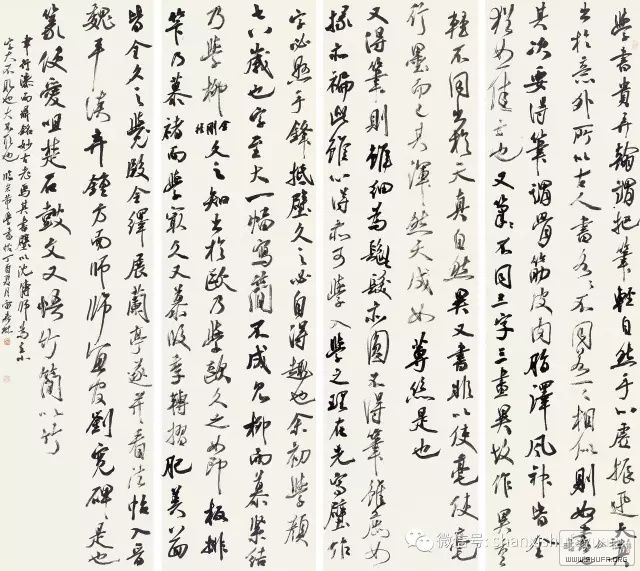 學書貴弄翰謂把筆輕自然手心虛振迅天真
出於意外所以古人書各各不同若一一相似則奴書
其次要得筆謂骨筋皮肉脂澤風神皆全
猶如佳士也又筆筆不同三字三畫異故作異重
輕不同出於天真自然異又書非以使毫使毫
行墨而已其渾然天成如蓴絲是也
又得筆則雖細為髭髮亦圓不得筆雖麁如
椽亦褊此雖心得亦可學入學之理在先寫壁作
字必懸手鋒抵壁久之必自得趣也余初學顏
七八歲也字至大一幅寫簡不成見柳而慕緊結
乃學柳金剛經久之知出於歐乃學歐久之如印板排
筭乃慕褚而學最久又慕段季轉摺肥美八面
皆全久之覺段全繹展蘭亭遂并看法帖入晉
魏平淡弃鍾方而師師宜官劉寬碑是也
篆便愛咀楚石鼓文又悟竹簡以竹
聿行漆而鼎銘妙古老焉其書壁以沈傳師為主小
字大不取也大不取也
微信号: